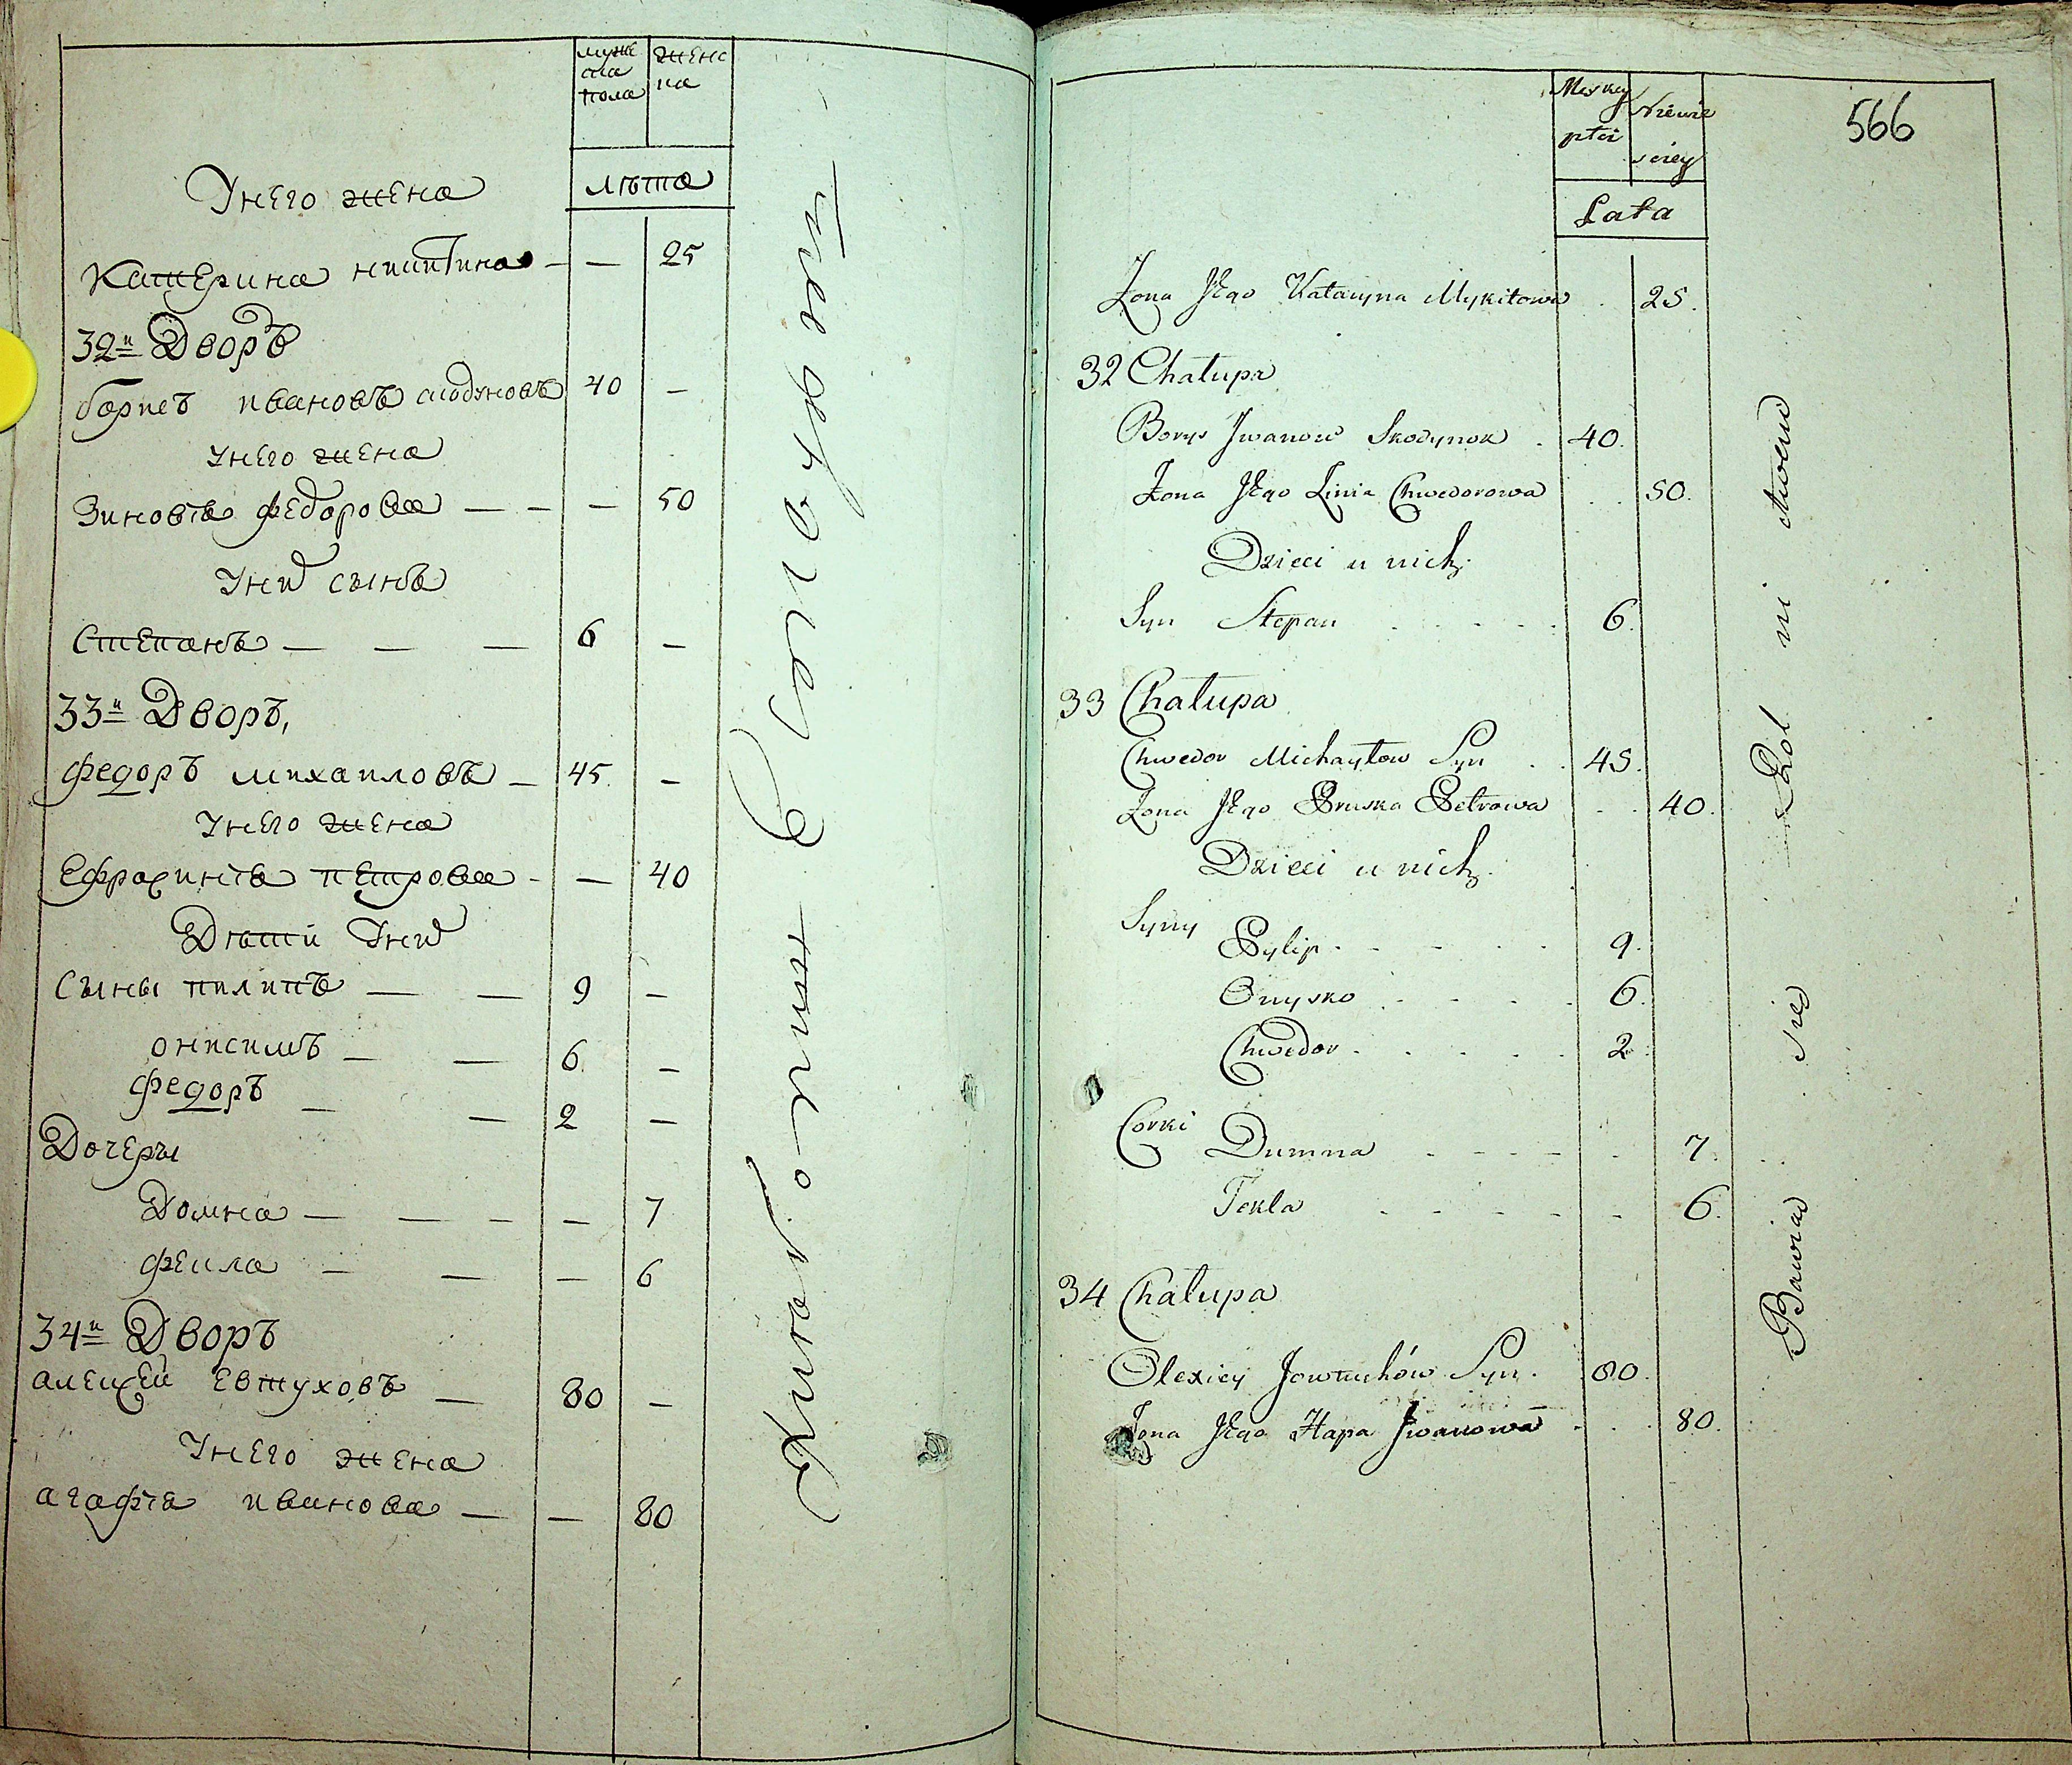 муже
ска
пола
женс
ка
лѣта
Унего жена
Катерина никитина — — 25
32й Дворъ
борисъ ивановъ скодуновъ 40 —
Унего жена
Зиновѣя федорова — — — 50
Уних сынъ
Степанъ — — — 6 —
33й Дворъ,
федоръ михаиловъ — 45. —
Унего жена
Ефросинѣя петрова — — 40
Дѣти Уних
Сыны пилипъ — — 9 —
онисимъ — — 6. —
федоръ — — 2 —
Дочеры
Домна — — — — 7
фекла — — — 6
34й Дворъ
алексей Евтуховъ — 80 —
Унего жена
агафѣя иванова — — 80
Męzkey
płci
Niewie
sciey
Lata
566
Zona Jego Kataryna Mykitowa . 25.
32 Chałupa
Borys Jwanow Skodynok . 40.
Zona Jego Zinia Chwedorowa . . 50.
Dzieci u nich
Syn Stepan . . . . . 6.
33 Chałupa
Chwedor Michayłow Syn . . 45.
Zona Jego Pruska Petrowa . . 40.
Dzieci u nich.
Syny Pylip . . . . 9.
Onysko . . . . 6.
Chwedor . . . . . 2.
Corki Dumna . . . . . 7.
Tekla . . . . . 6.
34 Chałupa
Olexiey Jowtuchów Syn. 80.
Zona Jego Hapa Jwanowa . . . 80.